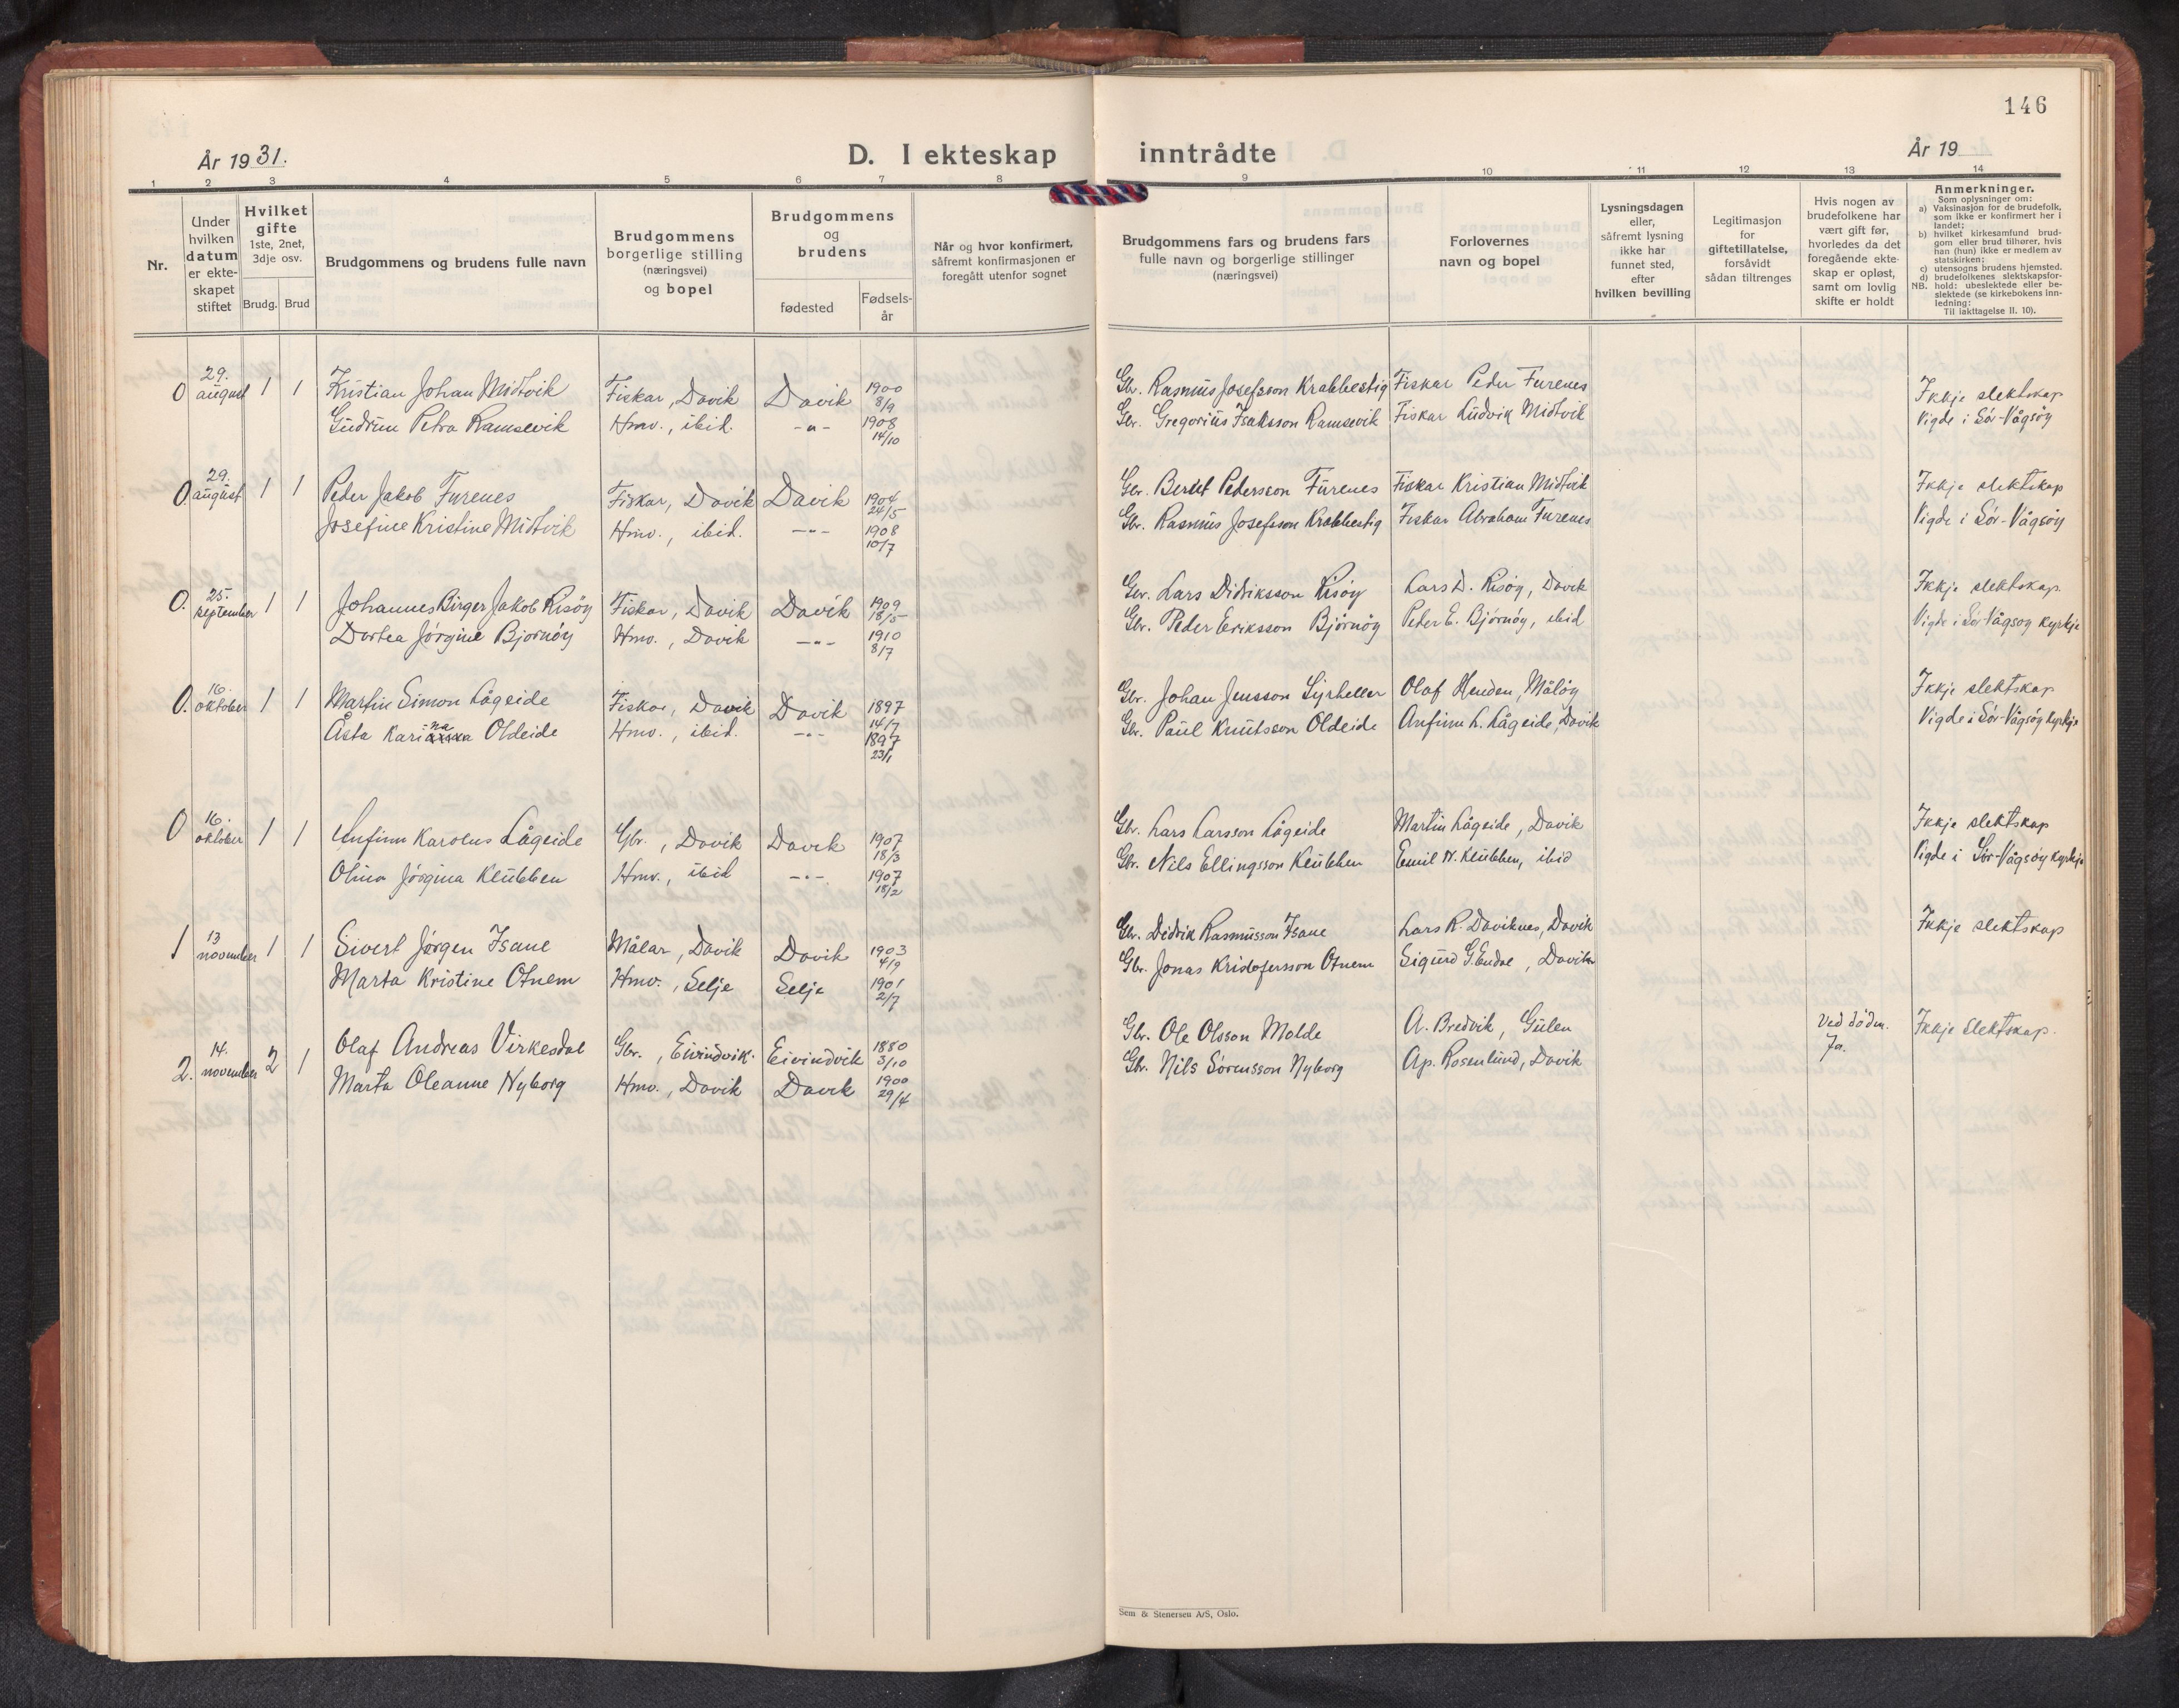 146
År 1931.
D. I ekteskap inntrådte
År 19
1 2 3 4 5 6 7 8 9 10 11 12 13 14
Nr.
Under
hvilken
datum
er ekte-
skapet
stiftet
Hvilket
gifte
1ste, 2net,
3dje osv.
Brudg. Brud
Brudgommens og brudens fulle navn
Brudgommens
borgerlige stilling
(næringsvei)
og bopel
Brudgommens
og
brudens
fødested
Fødsels-
år
Når og hvor konfirmert,
såfremt konfirmasjonen er
foregått utenfor sognet
Brudgommens fars og brudens fars
fulle navn og borgerlige stillinger
(næringsvei)
Forlovernes
navn og bopel
Lysningsdagen
eller,
såfremt lysning
ikke har
funnet sted,
efter
hvilken bevilling
Legitimasjon
for
giftetillatelse,
forsåvidt
sådan tiltrenges
Hvis nogen av
brudefolkene har
vært gift før,
hvorledes da det
foregående ekte-
skap er opløst,
samt om lovlig
skifte er holdt
Anmerkninger.
Som oplysninger om:
a) Vaksinasjon for de brudefolk,
som ikke er konfirmert her i
landet;
b) hvilket kirkesamfund brud-
gom eller brud tilhører, hvis
han (hun) ikke er medlem av
statskirken;
c) utensogns brudens hjemsted.
d) brudefolkenes slektskapsfor-
NB. hold: ubeslektede eller be-
slektede (se kirkebokens inn-
ledning:
Til iakttagelse II. 10).
0 29. august 1 1 Kristian Johan Midtvik Fiskar, Davik Davik 1900 8/9 Gbr. Rasmus Josefsson Krabbestig Fiskar Peder Furenes Ikkje slektskap
Gudrun Petra Ramsevik Hmv., ibid. -"- 1908 14/10 Gbr. Gregorius Isaksson Ramsevik Fiskar Ludvik Midtvik Vigde i Sør-Vågsøy
0. 29. august 1 1 Peder Jakob Furenes Fiskar, Davik Davik 1904 24/5 Gbr. Bernt Pedersson Furenes Fiskar Kristian Midtvik Ikkje slektskap
Josefine Kristine Midtvik Hmv., ibid. -"- 1908 10/7 Gbr. Rasmus Josefsson Krabbestig Fiskar Abraham Furenes Vigde i Sør-Vågsøy
0. 25. september 1 1 Johannes Birger Jakob Risøy Fiskar, Davik Davik 1909 18/5 Gbr. Lars Didriksson Risøy Lars D. Risøy, Davik Ikkje slektskap.
Dortea Jørgine Bjørnøy Hmv., Davik -"- 1910 8/7 Gbr. Peder Eriksson Bjørnøy Peder E. Bjørnøy, ibid Vigde i Sør-Vågsøy kyrkje
0. 16. oktober 1 1 Martin Simon Lågeide Fiskar, Davik Davik 1897 14/7 Gbr. Johan Jensson Syrheller Olaf Henden, Måløy Ikkje slektskap
Åsta Karina Oldeide Hmv., ibid. -"- 1897 23/1 Gbr. Paul Knutsson Oldeide Anfinn L. Lågeide, Davik Vigde i Sør-Vågsøy kyrkje
0 16. oktober 1 1 Anfinn Karolus Lågeide Gbr., Davik Davik 1907 18/3 Gbr. Lars Larsson Lågeide Martin Lågeide, Davik Ikkje slektskap
Olina Jørgina Klubben Hmv., ibid -"- 1907 18/2 Gbr. Nils Ellingsson Klubben Emil N. Klubben, ibid Vigde i Sør-Vågsøy kyrkje
1 13 november 1 1 Sivert Jørgen Isane Målar, Davik Davik 1903 4/9 Gbr. Didrik Rasmusson Isane Lars R. Daviknes, Davik Ikkje slektskap
Marta Kristine Otnem Hmv., Selje Selje 1901 2/7 Gbr. Jonas Kristofersson Otnem Sigurd G. Endal, Davik
2. 14. november 2 1 Olaf Andreas Virkesdal Gbr., Eivindvik. Eivindvik 1880 3/10 Gbr. Ole Olsson Molde A. Bredvik, Gulen Ved døden. Ikkje slektskap.
Marta Oleanne Nyborg Hmv., Davik Davik 1900 29/4 Gbr. Nils Sørensson Nyborg Ap. Rosenlund, Davik Ja.
Sem & Stenersen A/S, Oslo.